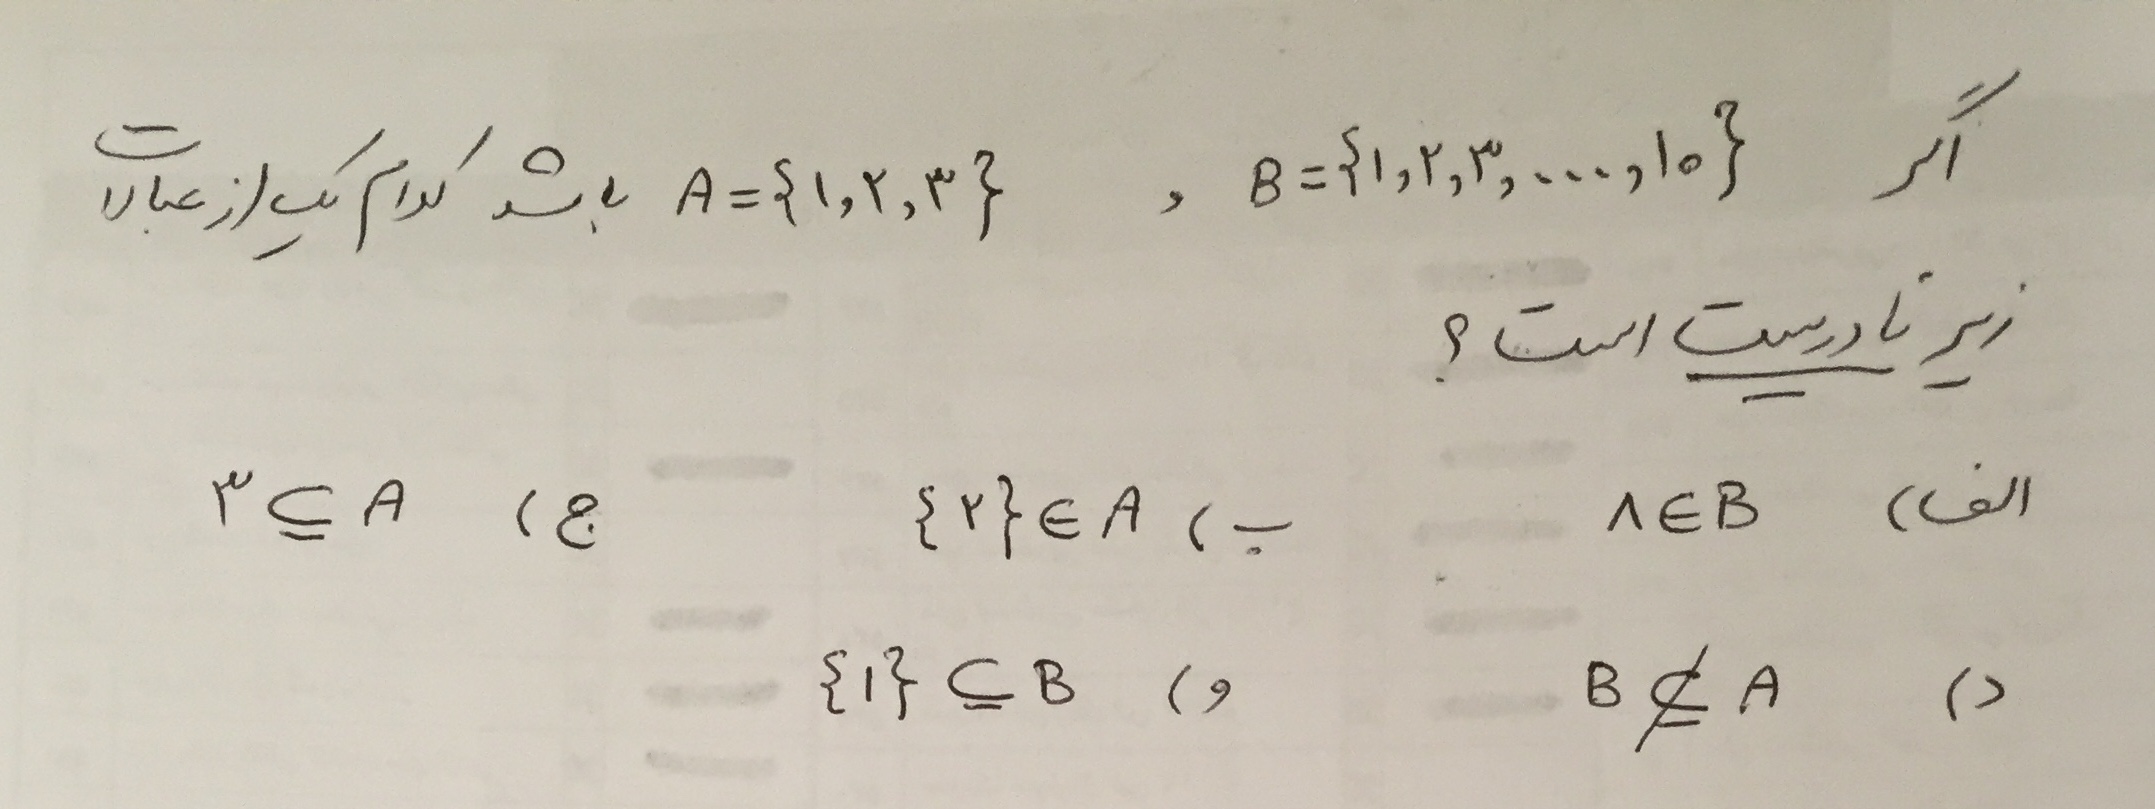 اگر B={۱,۲,۳,...,۱۰} , A={۱,۲,۳} باشد کدام یک از عبارات
زیر نادرست است ؟
الف) ۸∈B ب) {۲}∈A ج) ۳⊆A
د) B⊈A و) {۱}⊆B